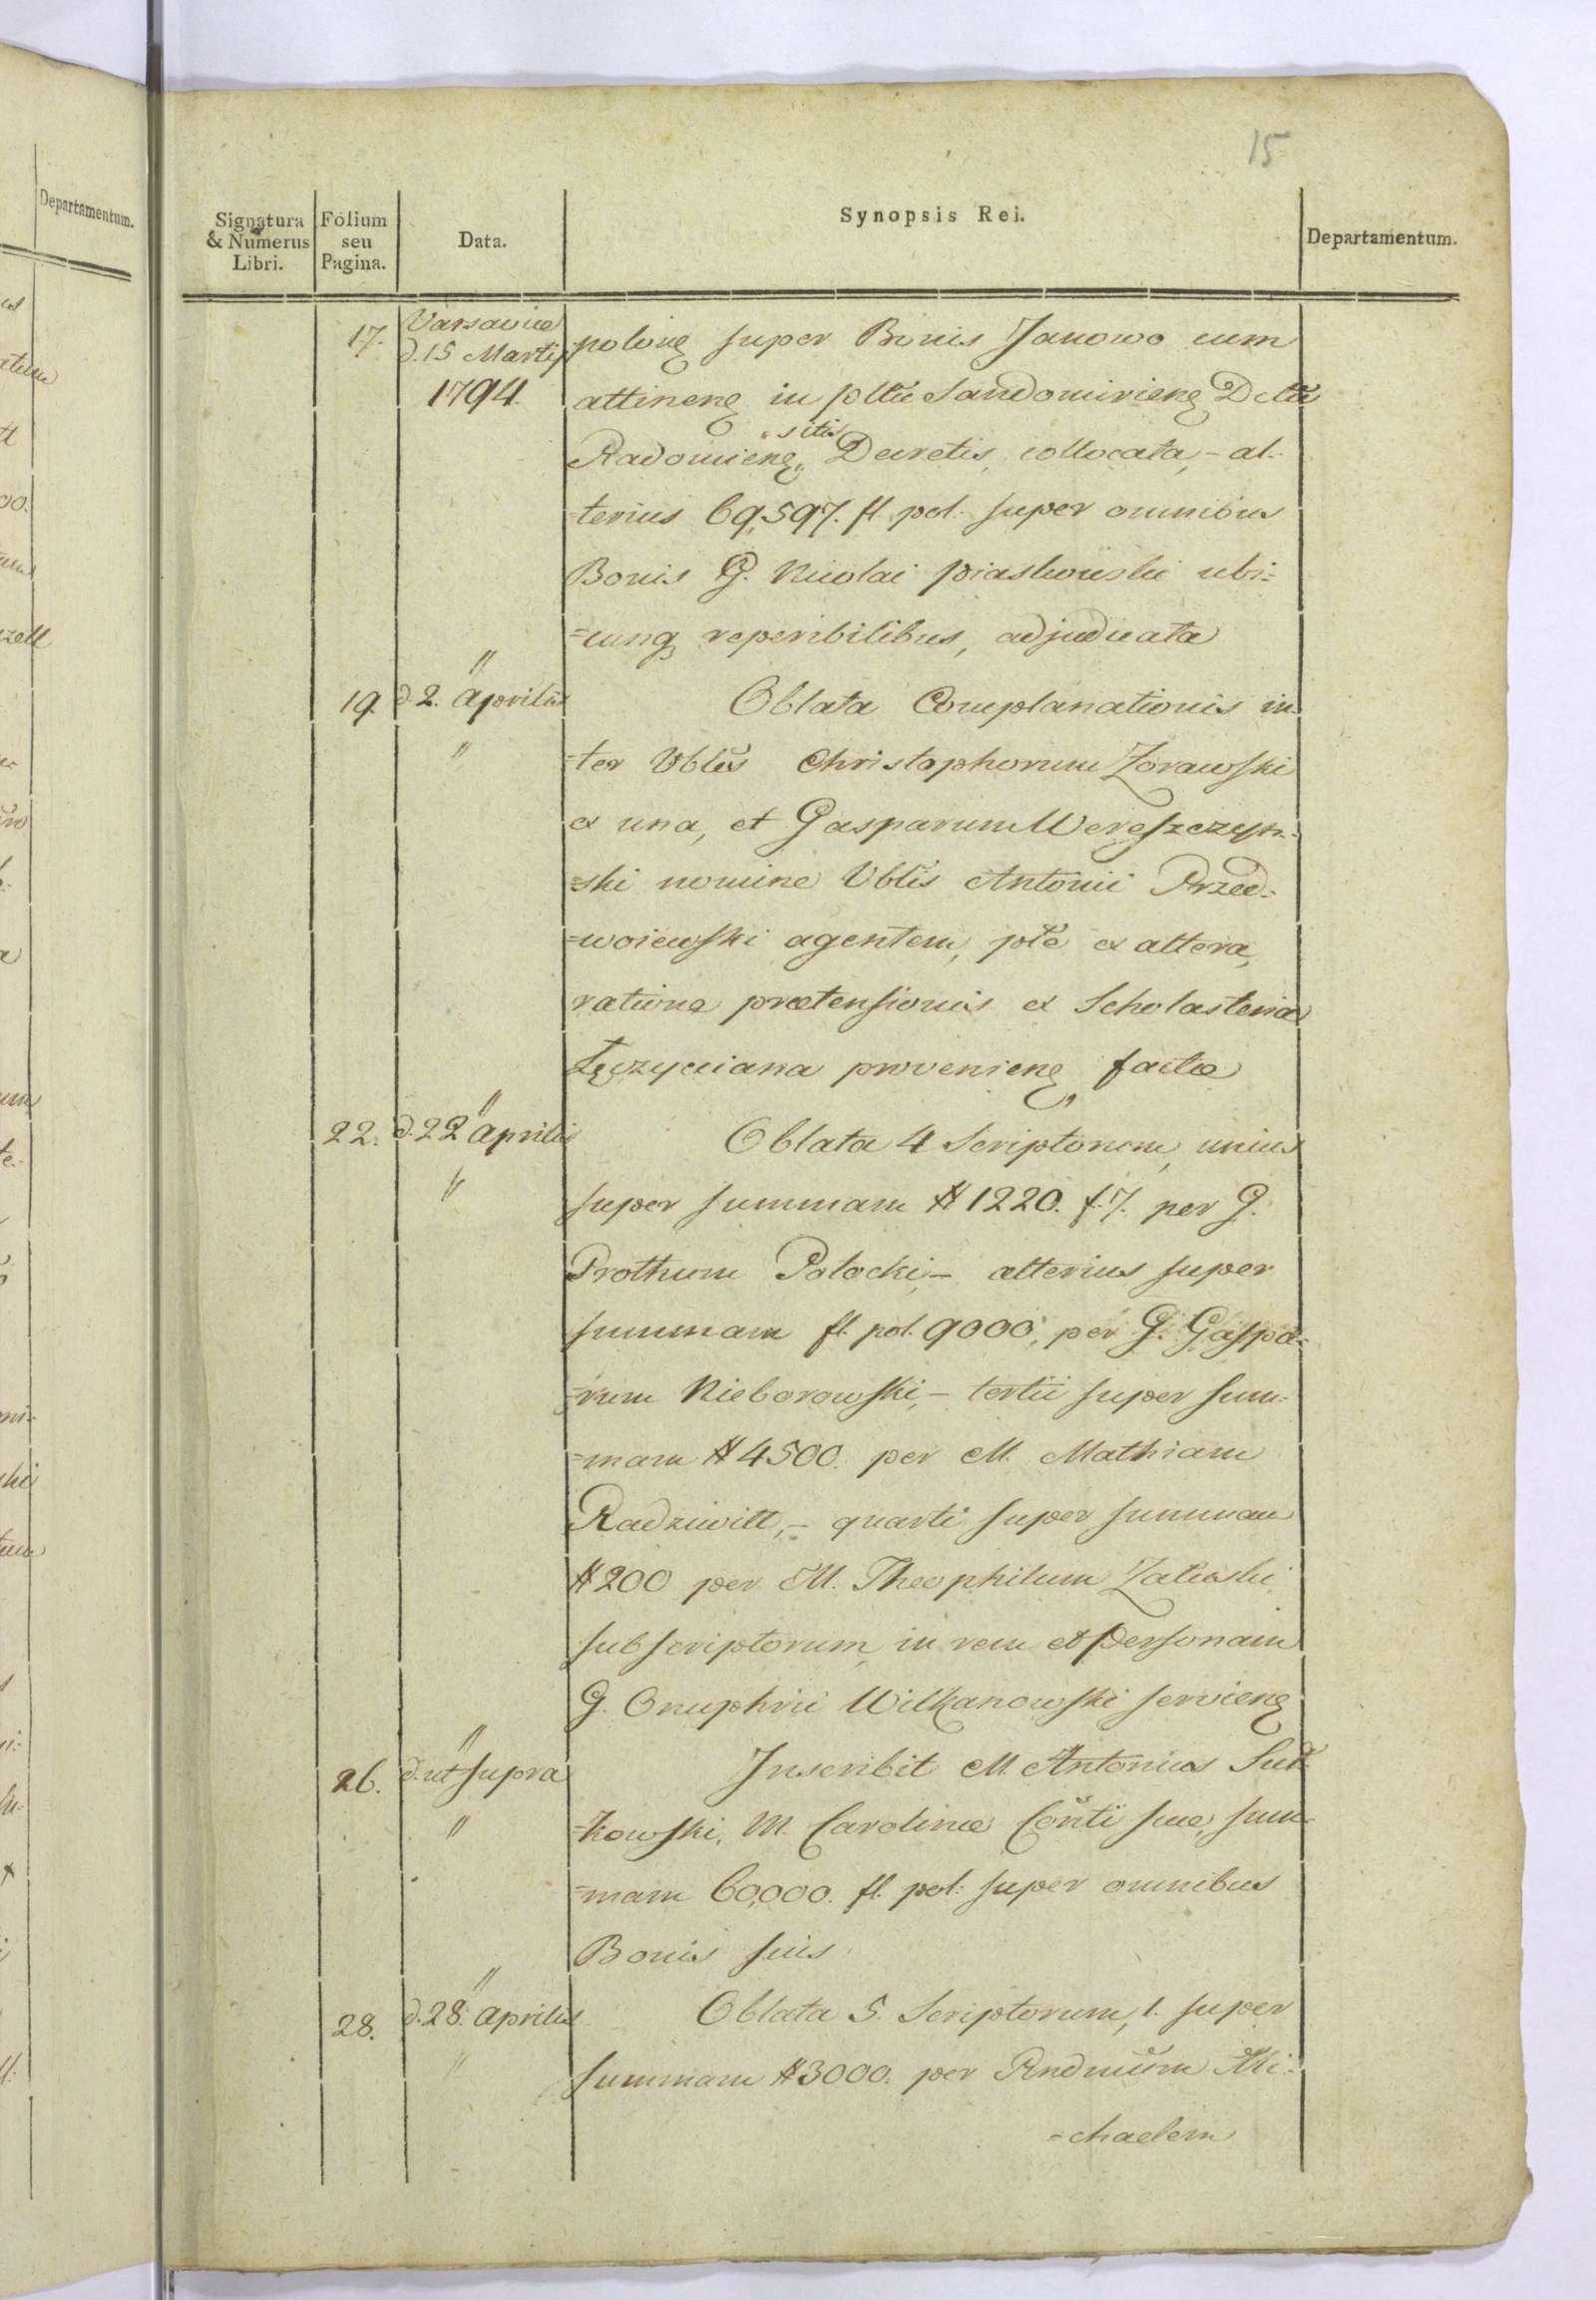 15
Departamentum.
Signatura & Numerus Libri.
Folium seu Pagina.
Data.
Synopsis Rei.
Departamentum.
17. Varsaviæ d. 15 Martij 1794.
polong super Bonis Janowo cum
attineng in plttu Sandomirieng Dctu
Radomieng „sitis Decretis, collocata, – al-
terius 69,597. fl. pol. super omnibus
Bonis G. Nicolai Piaskowski ubi=
=cunq reperibilibus, adjudicata
19. " d. 2. Aprilis "
Oblata Complanationis in=
=ter Vbles Christophorum Zorawski
ex una, et Gasparum Wereszczyn=
=ski nomine Vblis Antonii Przed=
=woiewski agentem, pte ex altera,
ratione prætensionis ex Scholasteria
Łęczyciana provenieng factæ
22. " d. 22 Aprilis "
Oblata 4 Scriptorum, unius
super summam # 1220. f. 7. per G.
Prothum Potocki, – alterius super
summam fl. pol. 9000, per G. Gaspa=
=rum Nieborowski, – tertii super sum=
=mam # 4500. per M. Mathiam
Radziwill, – quarti super summam
# 200 per M. Theophilum Zaluski
subscriptorum in rem et personam
G. Onuphrii Wilkanowski servieng
26. " d. ut supra "
Inscribit M. Antonius Suł=
=kowski, M. Carolinæ Cońti suæ, sum=
=mam 60,000. fl. pol: super omnibus
Bonis suis
28. " d. 28. Aprilis "
Oblata 5. Scriptorum, 1. super
summam # 3000. per Rndmum Mi=
=chaelem